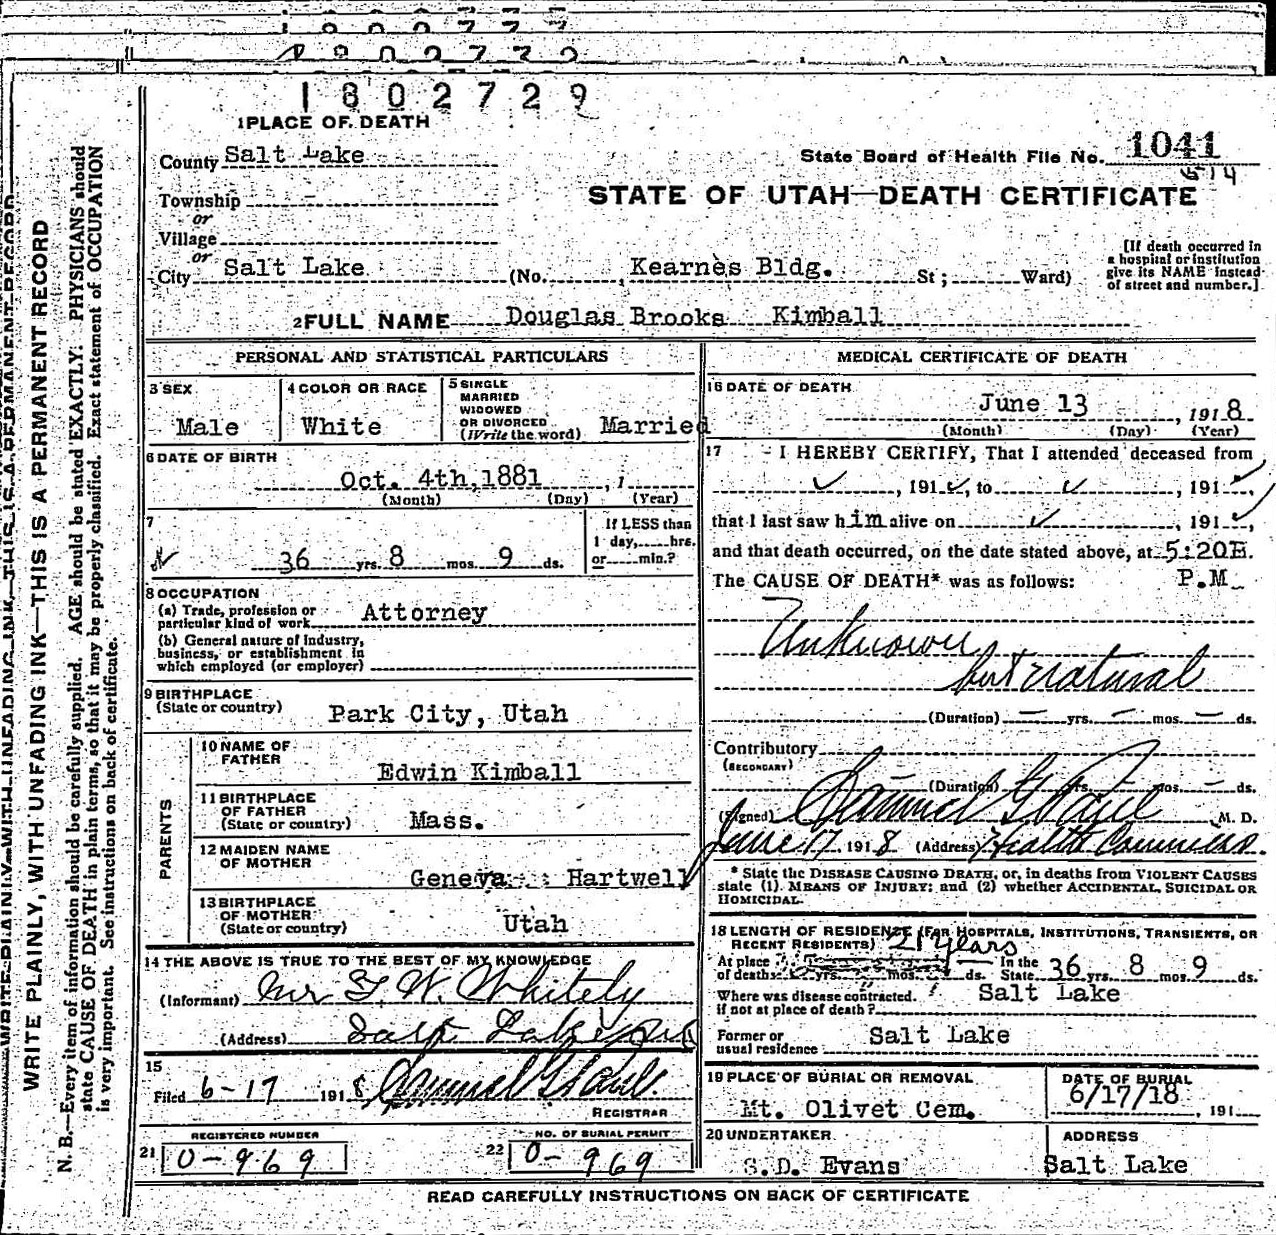 1802729
1 PLACE OF DEATH
County Salt Lake
State Board of Health File No. 1041
614
Township
or
Village
or
STATE OF UTAH—DEATH CERTIFICATE
City Salt Lake (No. Kearnes Bldg. St; Ward)
[If death occurred in
a hospital or institution
give its NAME instead
of street and number.]
2 FULL NAME Douglas Brooks Kimball
PERSONAL AND STATISTICAL PARTICULARS
3 SEX
Male
4 COLOR OR RACE
White
5 SINGLE
MARRIED
WIDOWED
OR DIVORCED
(Write the word) Married
6 DATE OF BIRTH
Oct. 4th, 1881
(Month) (Day) (Year)
7
36 yrs. 8 mos. 9 ds.
If LESS than
1 day, hrs.
or min.?
8 OCCUPATION
(a) Trade, profession or
particular kind of work Attorney
(b) General nature of Industry,
business, or establishment in
which employed (or employer)
9 BIRTHPLACE
(State or country) Park City, Utah
PARENTS
10 NAME OF
FATHER
Edwin Kimball
11 BIRTHPLACE
OF FATHER
(State or country) Mass.
12 MAIDEN NAME
OF MOTHER
Geneva Hartwell
13 BIRTHPLACE
OF MOTHER
(State or country) Utah
14 THE ABOVE IS TRUE TO THE BEST OF MY KNOWLEDGE
(Informant) Mr F. W. Whitely
(Address) Salt Lake
15
Filed 6-17 1918 Samuel G Paul
REGISTRAR
REGISTERED NUMBER
21 0-969
NO. OF BURIAL PERMIT
22 0-969
MEDICAL CERTIFICATE OF DEATH
16 DATE OF DEATH
June 13, 1918
(Month) (Day) (Year)
17 I HEREBY CERTIFY, That I attended deceased from
, 191 , to , 191 ,
that I last saw him alive on , 191 ,
and that death occurred, on the date stated above, at 5:20
P.M
The CAUSE OF DEATH* was as follows:
Unknown
but natural
(Duration) — yrs. — mos. — ds.
Contributory
(SECONDARY)
(Duration) yrs. — mos. — ds.
(Signed) Samuel G Paul, M. D.
June 17, 1918 (Address) Health Commiss.
* State the DISEASE CAUSING DEATH, or, in deaths from VIOLENT CAUSES
state (1) MEANS OF INJURY; and (2) whether ACCIDENTAL, SUICIDAL OR
HOMICIDAL.
18 LENGTH OF RESIDENCE (FOR HOSPITALS, INSTITUTIONS, TRANSIENTS, OR
RECENT RESIDENTS) 21 years
At place
of death yrs. mos. ds. In the
State 36 yrs. 8 mos. 9 ds.
Where was disease contracted.
if not at place of death? Salt Lake
Former or
usual residence Salt Lake
19 PLACE OF BURIAL OR REMOVAL
Mt. Olivet Cem.
DATE OF BURIAL
6/17/18, 191
20 UNDERTAKER
S.D. Evans
ADDRESS
Salt Lake
READ CAREFULLY INSTRUCTIONS ON BACK OF CERTIFICATE
WRITE PLAINLY, WITH UNFADING INK—THIS IS A PERMANENT RECORD
N. B.—Every item of information should be carefully supplied. AGE should be stated EXACTLY. PHYSICIANS should
state CAUSE OF DEATH in plain terms, so that it may be properly classified. Exact statement of OCCUPATION
is very important. See instructions on back of certificate.